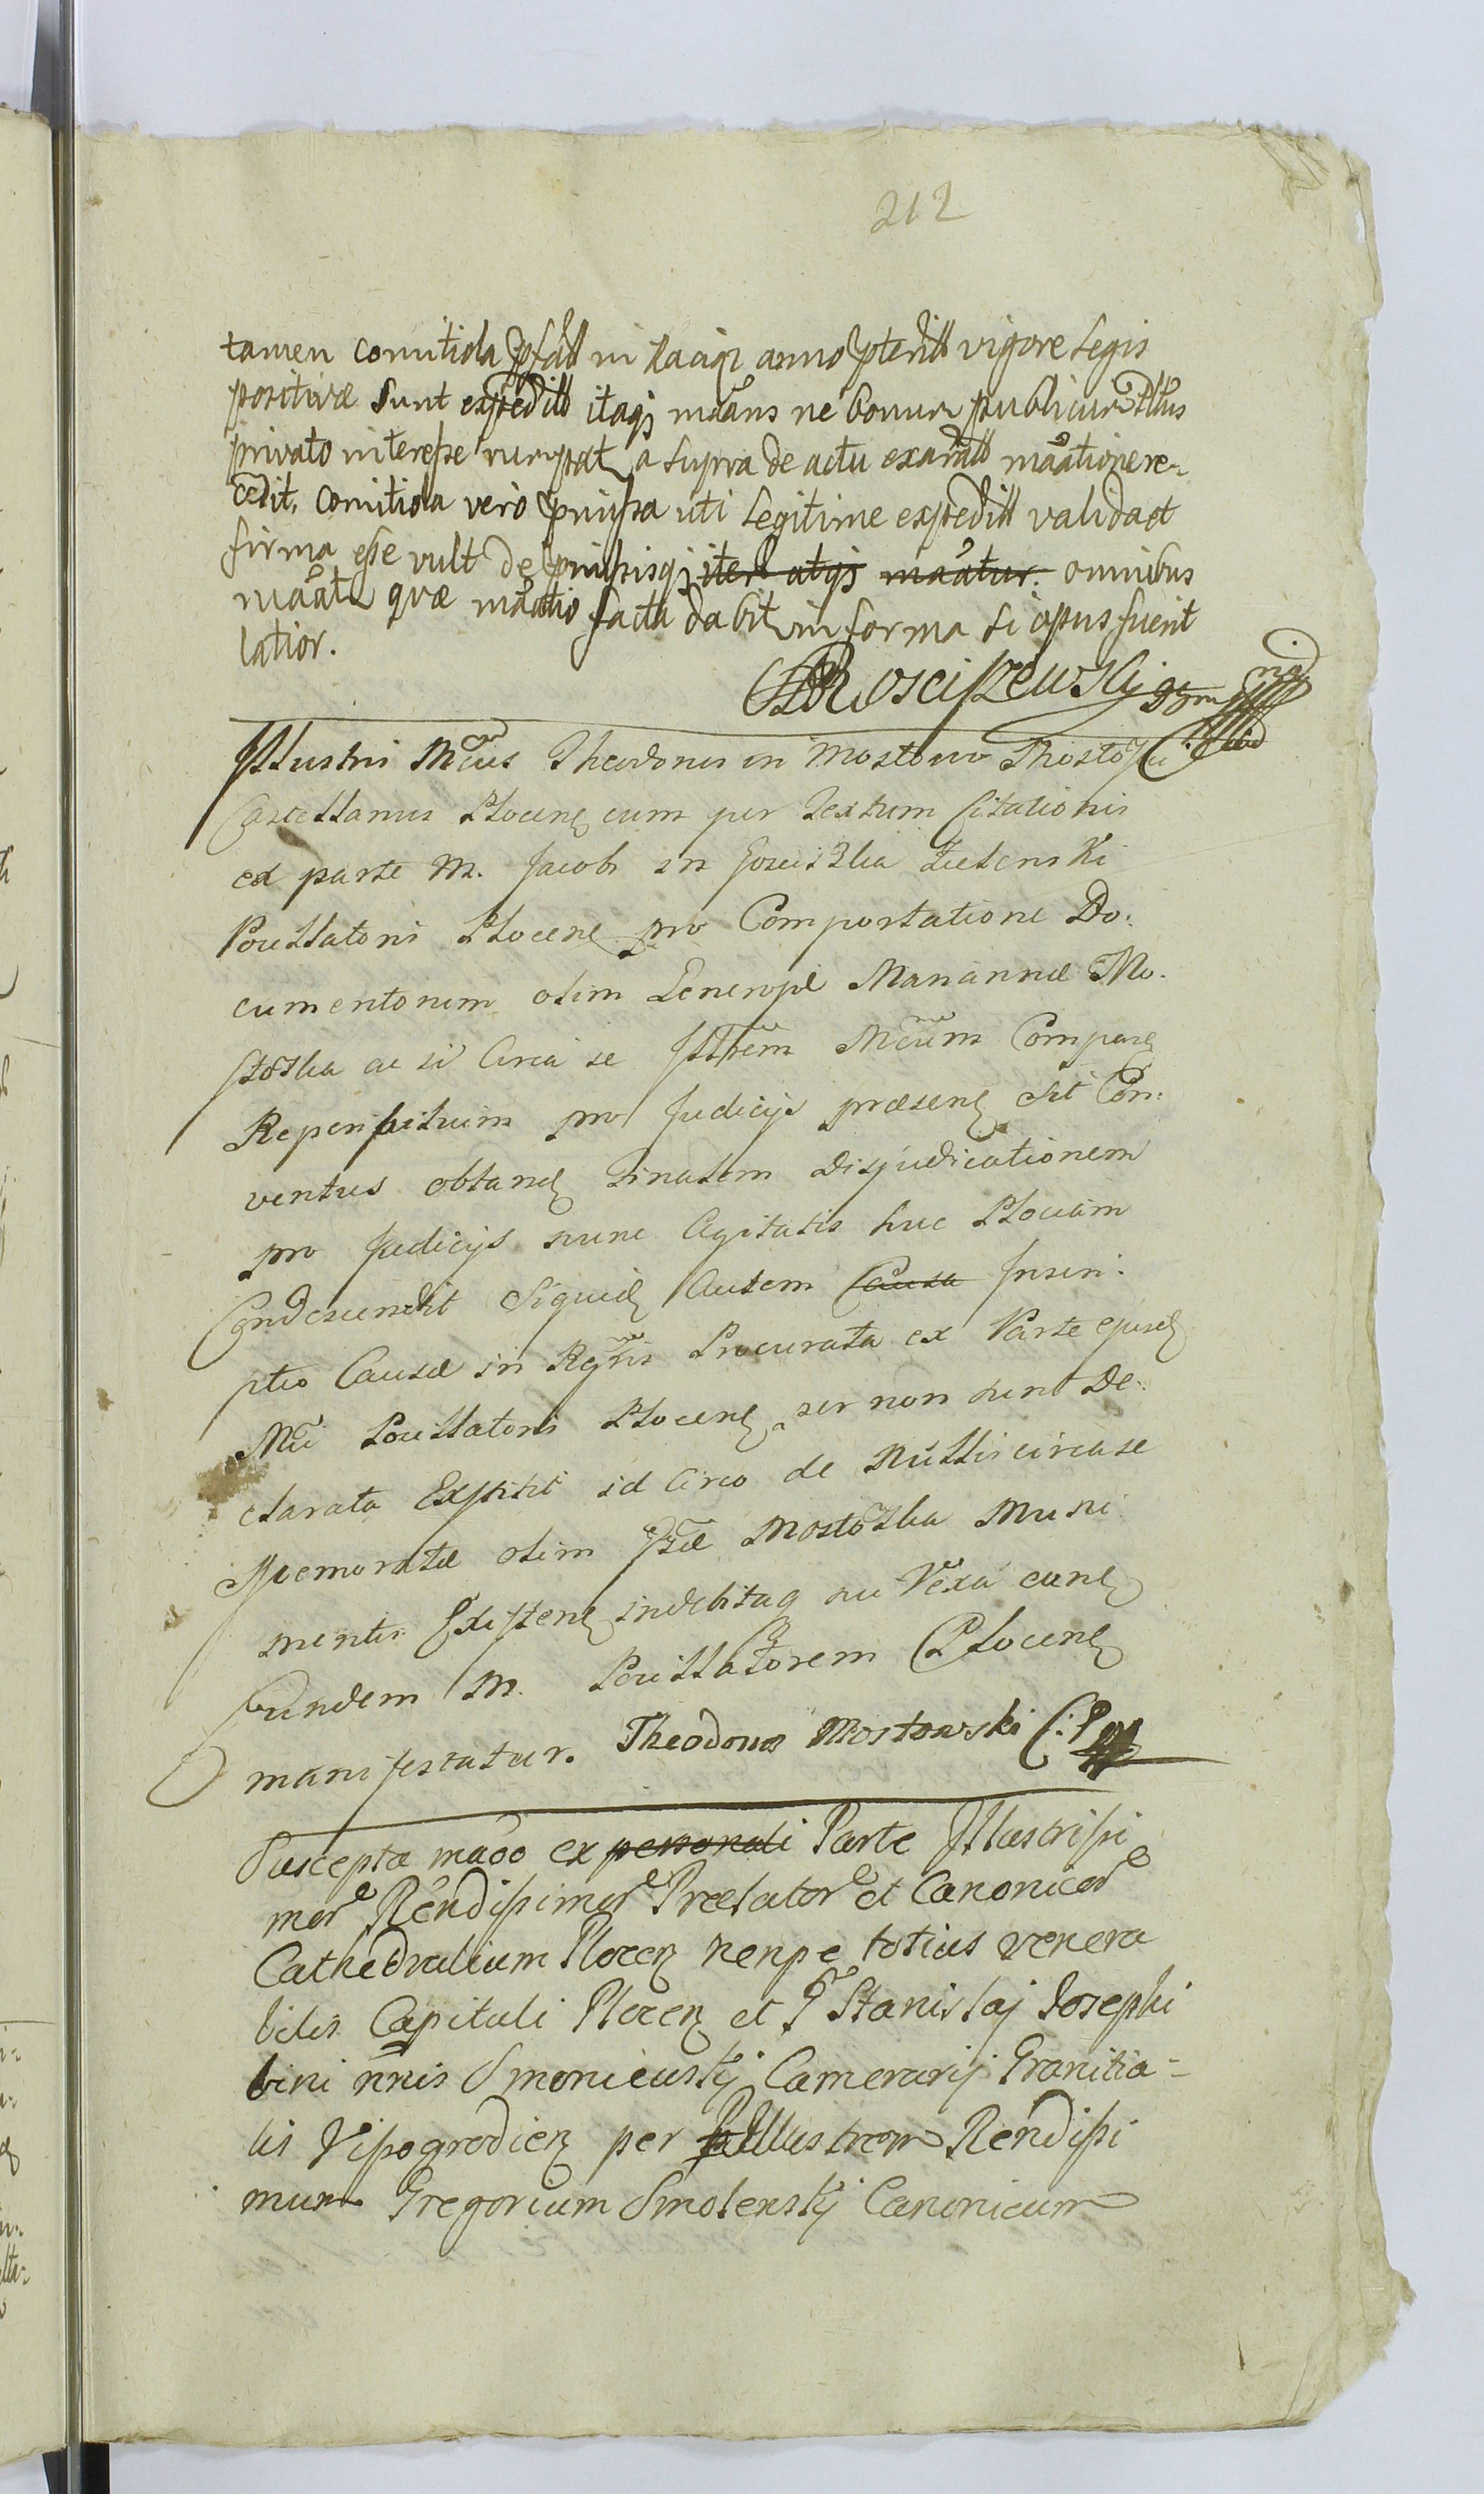 212
tamen comitiola in Raciąż anno vigore Legis
positivæ sunt expedita itaqz mãns ne bonum publicum
privato interesse rumpat a supra de actu exarata mãatione re-
cedit. Comitiola vero præmissa uti Legitime expedita valida et
firma esse vult de præmissisqz iterū atqz mãatur. omnibus
mãat quæ mãatio facta dabit in forma si opus fuerit
latior.
Rosciszewskj
Illustris Mcus Theodorus in Mostowo
Castellanus Plocen cum per Textum Citationis
ex parte M. Jacobi in Zielenski
Pocillatoris Plocen pro Comportatione Do:
cumentorum olim Penerosæ Mariannæ Mo-
stoska ac si Circa se Illrem Mcum Comparen
pro Judicijs præsen Sit Con:
ventus obtanen finalem Disjudicationem
pro Judicijs nunc Agitatis huc Plociam
Condescendit Siquid Autem Causa Inscri:
ptio Causæ in Regris Procurata ex Parte ejusd
Mci Pocillatoris Plocen per non sunt De:
clarata Exstitit id Circo de Nullis circa se
Memoratæ olim Mostoska Muni
mentis Existen indebitaq sui Vexa eune
eundem M. Pocillatorem Plocen
manifestatur. Theodorus Mostowski C: P
Suscepta mãoo ex personali Parte Illustrissi
mor Rendissimor Prælator et Canonicor
Cathedralium Plocen nempe totius venera
bilis Capituli Plocen et Stanislaj Josephi
bini nnis Smoniewskj Camerarij Granitia-
lis Vissogrodien per Illustrem Rendissi
mum Gregorium Smolenskj Canonicum